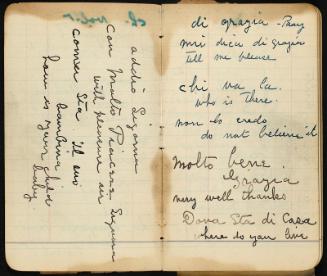 addio Signora
Con Molto Piacere Signora
with pleasure sir
comer Sta il suo
bambina
how is your child
baby
di grazia - Pray
mi dica di grazia
tell me please
chi va la.
who is there.
non lo credo
do not believe it
Molto bene.
Grazia
very well thanks
Dova Sta di Casa
where do you live